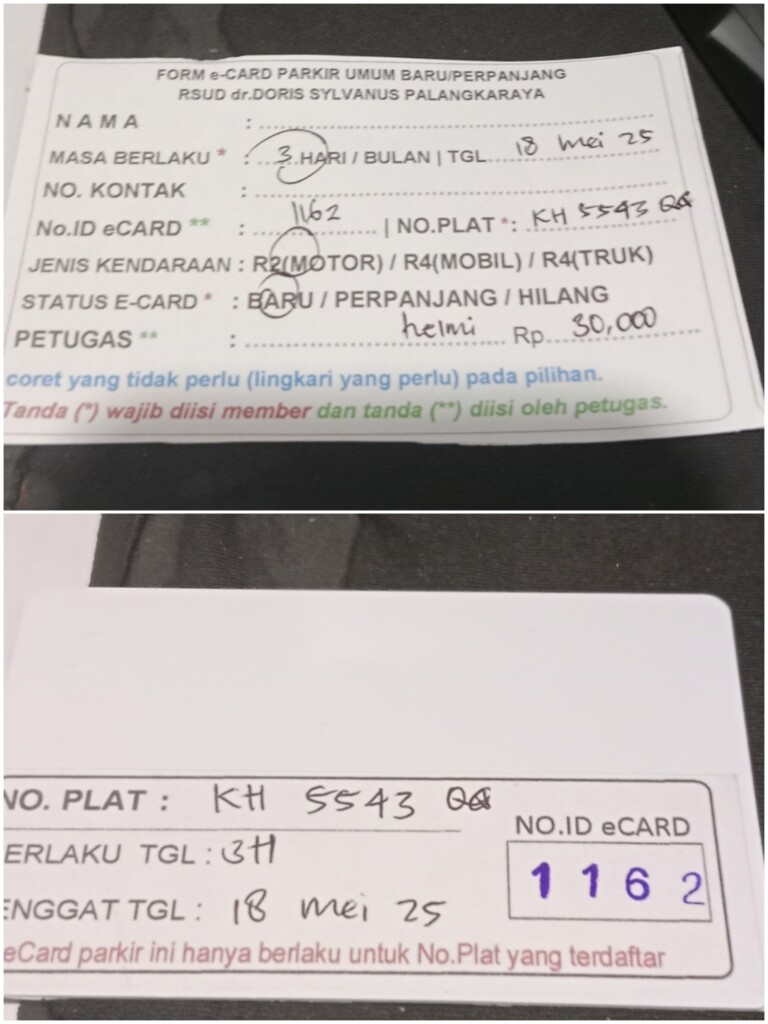 FORM e-CARD PARKIR UMUM BARU/PERPANJANG
RSUD dr.DORIS SYLVANUS PALANGKARAYA
NAMA :
MASA BERLAKU * : 3 HARI / BULAN | TGL 18 mei 25
NO. KONTAK :
No.ID eCARD ** : 1162 | NO.PLAT *: KH 5543 QQ
JENIS KENDARAAN : R2(MOTOR) / R4(MOBIL) / R4(TRUK)
STATUS E-CARD * : BARU / PERPANJANG / HILANG
PETUGAS ** : helmi Rp. 30,000
coret yang tidak perlu (lingkari yang perlu) pada pilihan.
Tanda (*) wajib diisi member dan tanda (**) diisi oleh petugas.
NO. PLAT : KH 5543 QQ
ERLAKU TGL : 3H
ENGGAT TGL : 18 mei 25
NO.ID eCARD
1162
eCard parkir ini hanya berlaku untuk No.Plat yang terdaftar